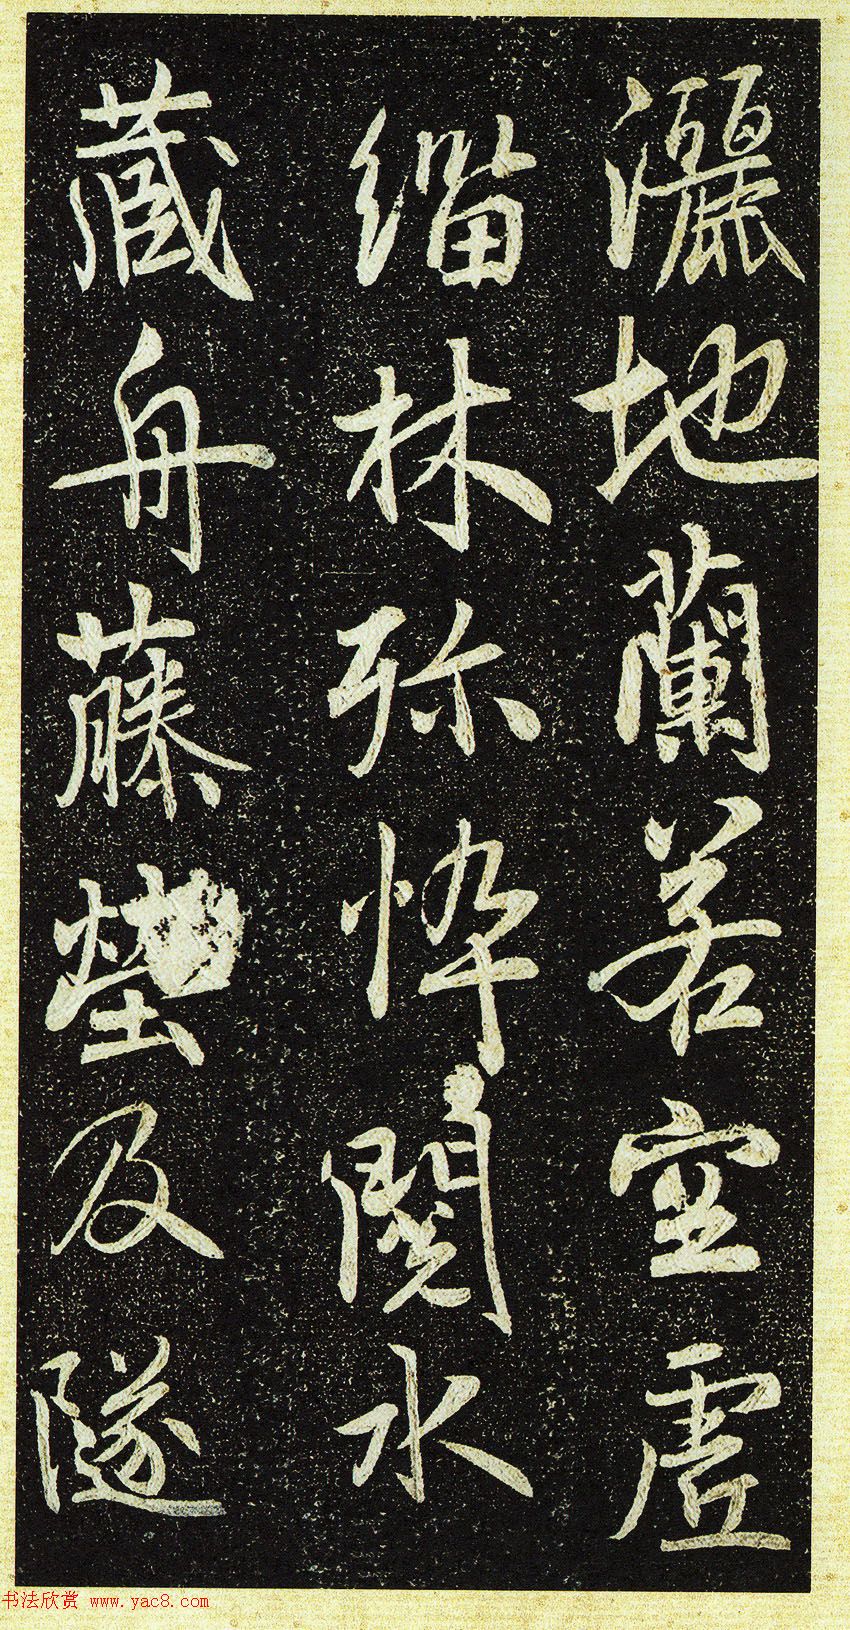 灑地蘭若空虛
緇林弥悴閱水
藏舟藤塋及隧
书法欣赏 www.yac8.com